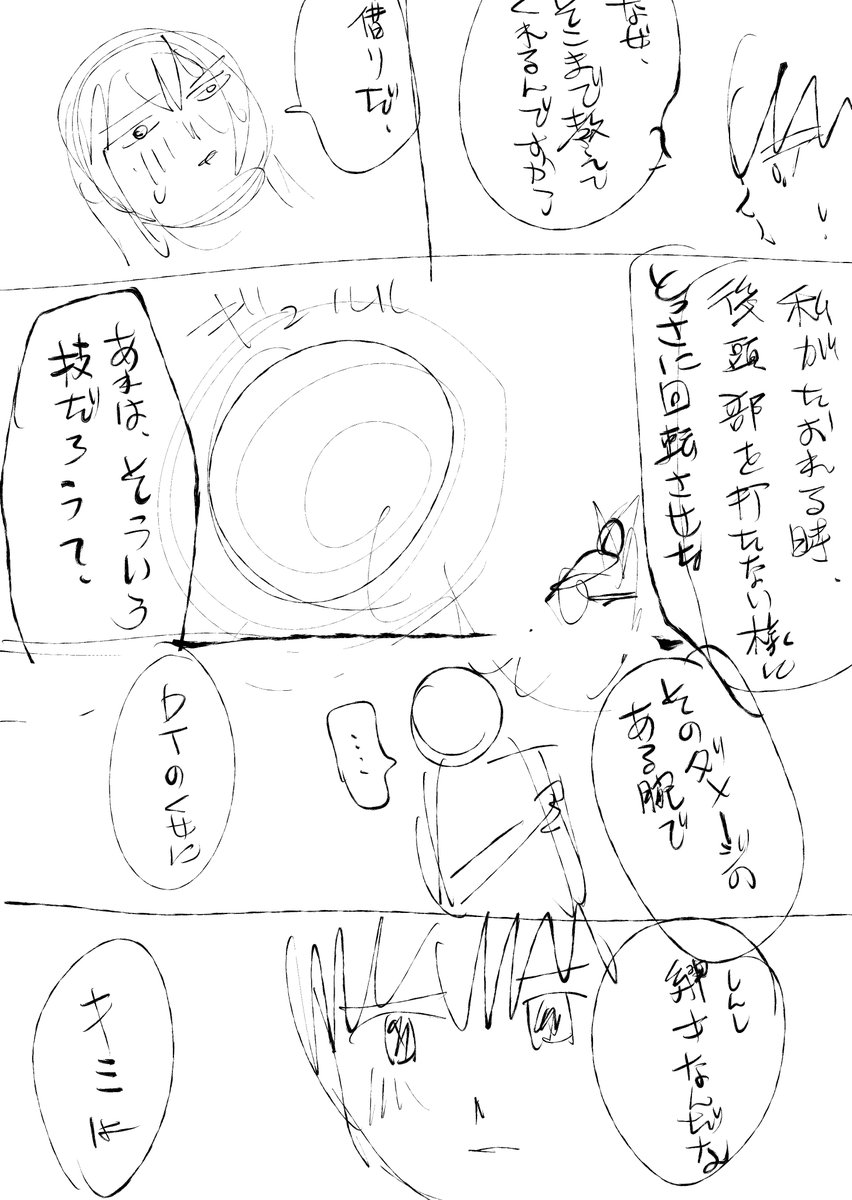 なぜ、
そこまで教えて
くれるんですか?
借りだ、
私がたおれる時、
後頭部を打たない様に
とっさに回転させた
ギュルルル
あれは、そういう
技だろうて、
そのダメージの
ある腕で
・・・・
DTのくせに
しんし
紳士なんだな
キミは